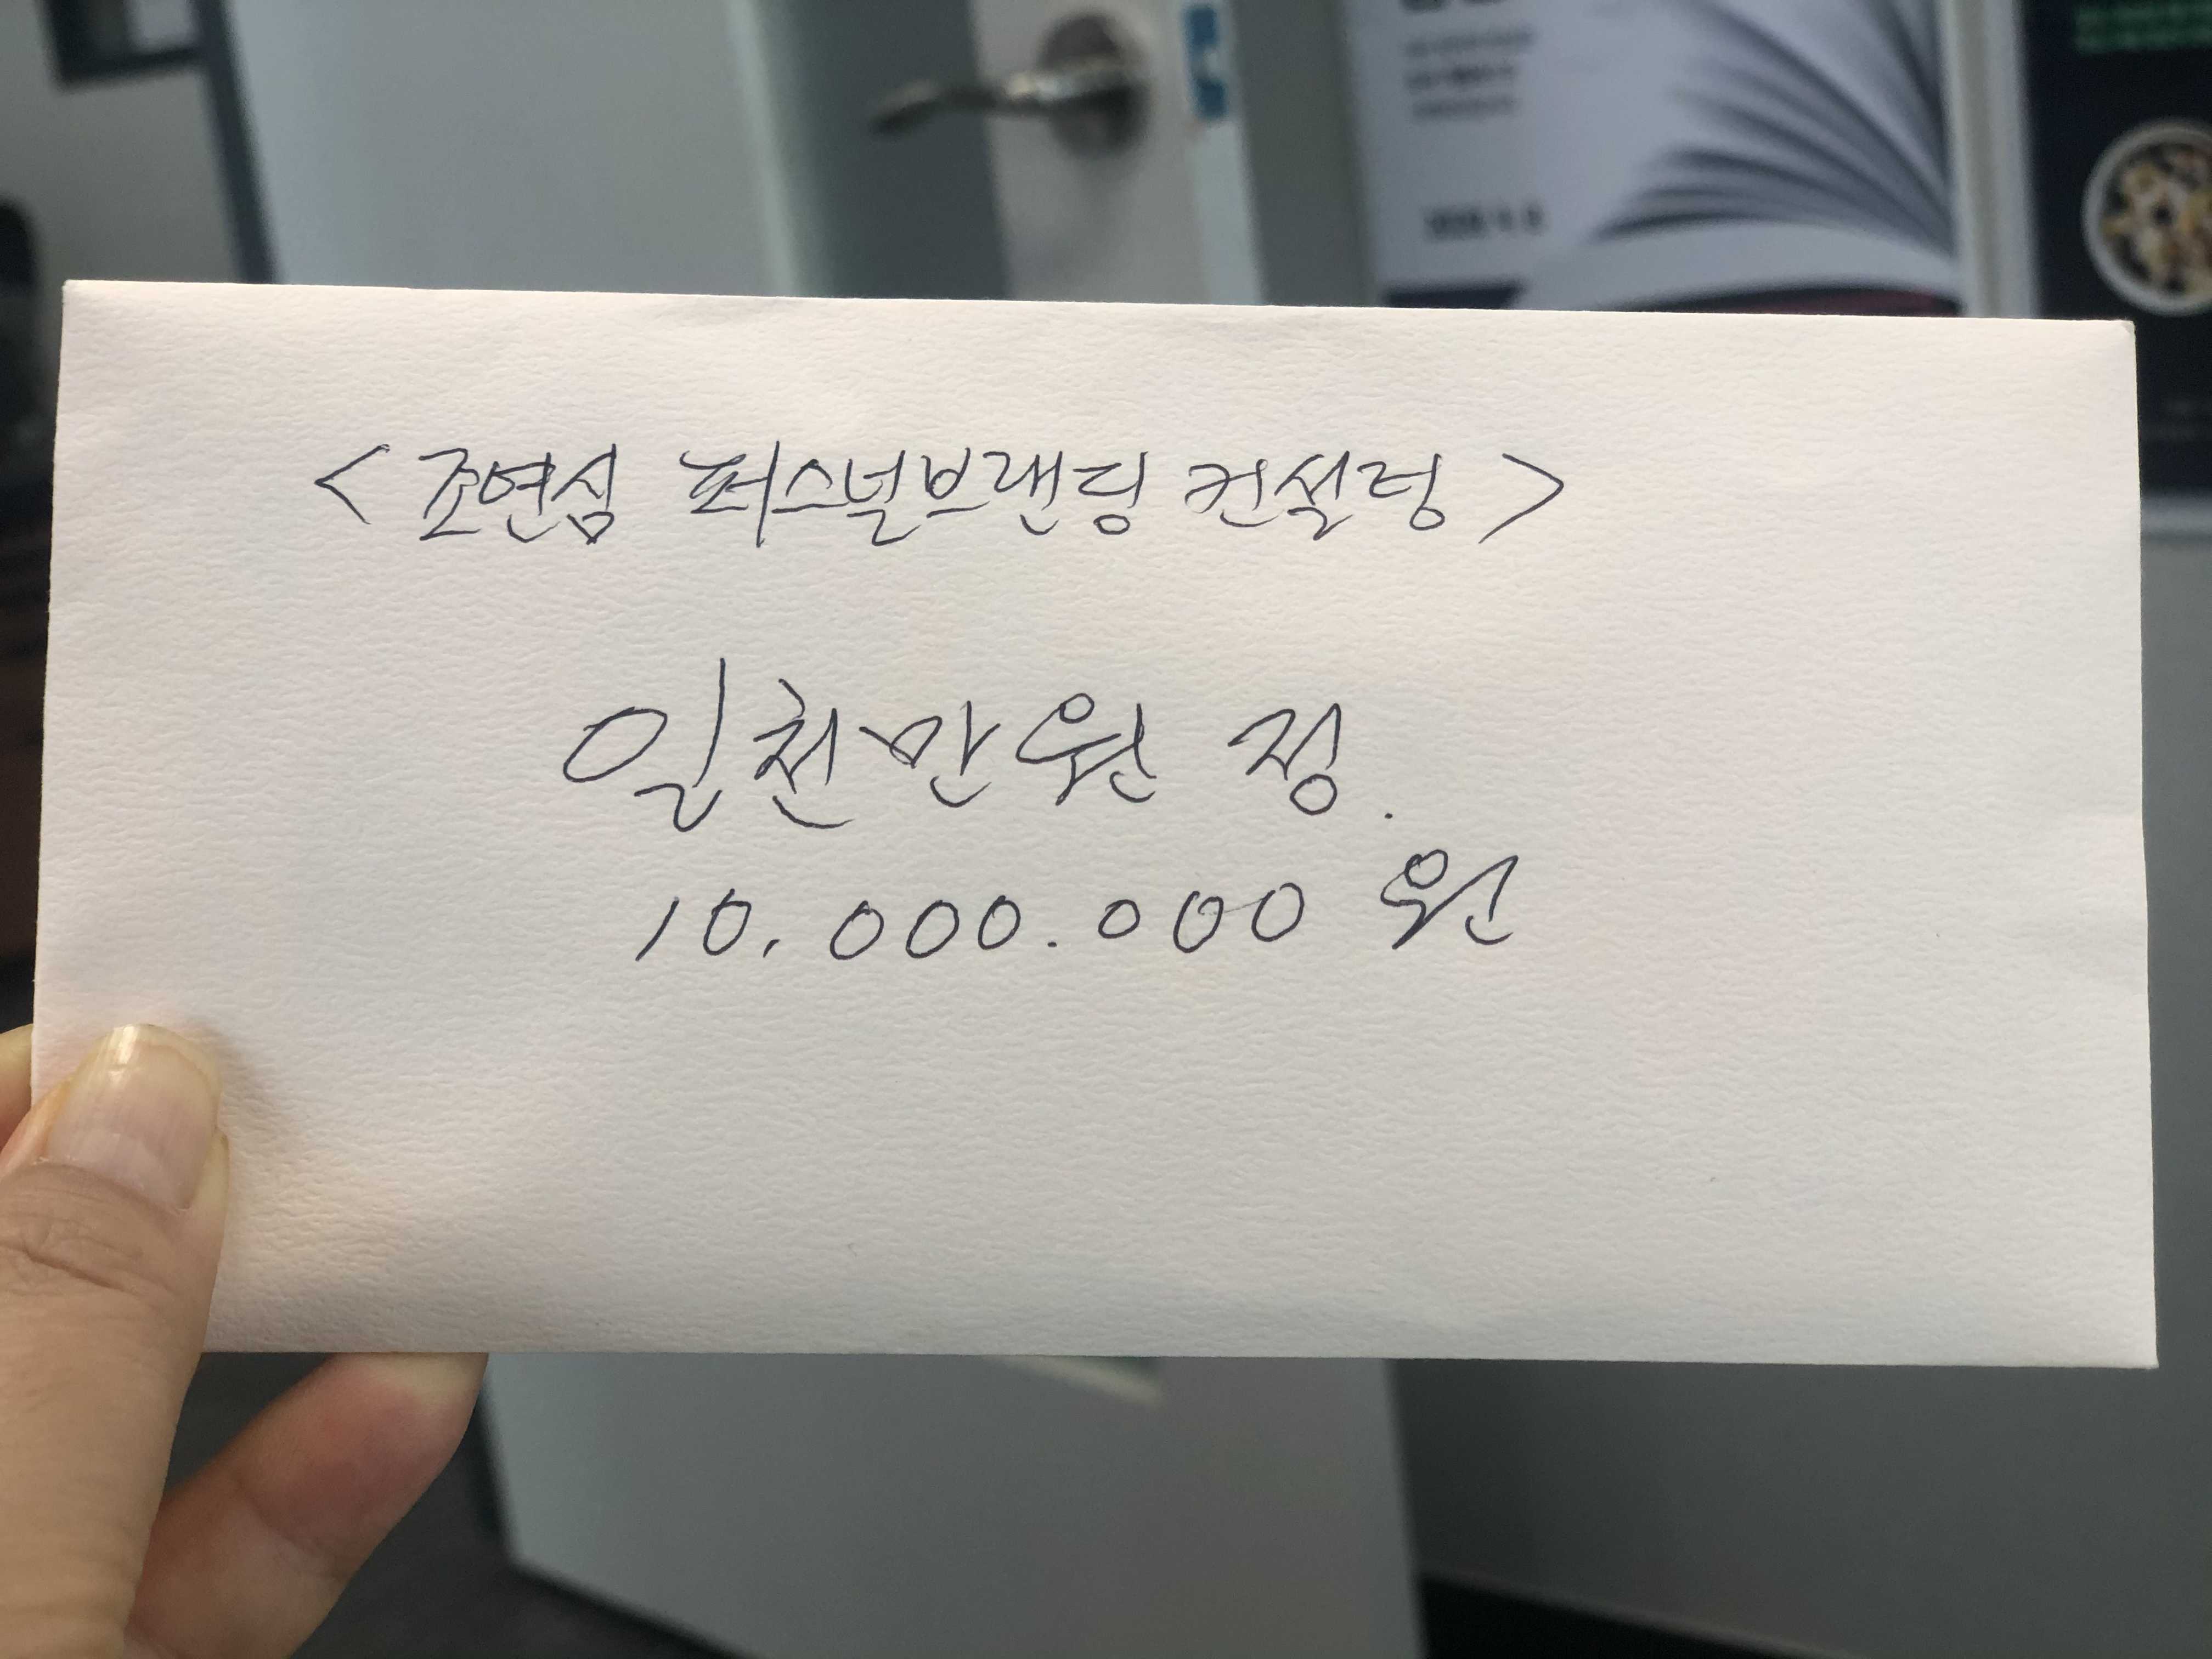 <조연심 퍼스널브랜딩 컨설팅>
일천만원 정.
10,000.000 원